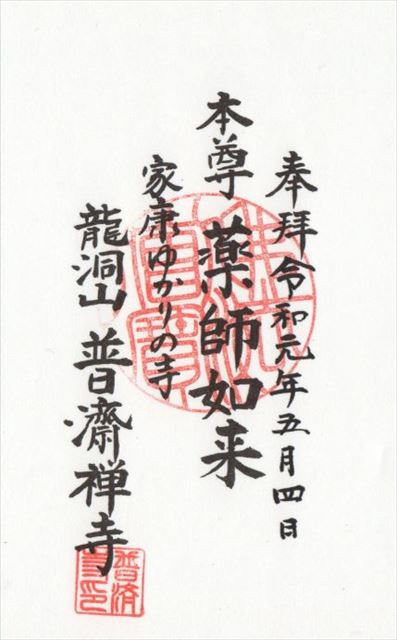 奉拝令和元年五月四日
本尊 薬師如来
家康ゆかりの寺
龍洞山 普濟禅寺
普済寺印